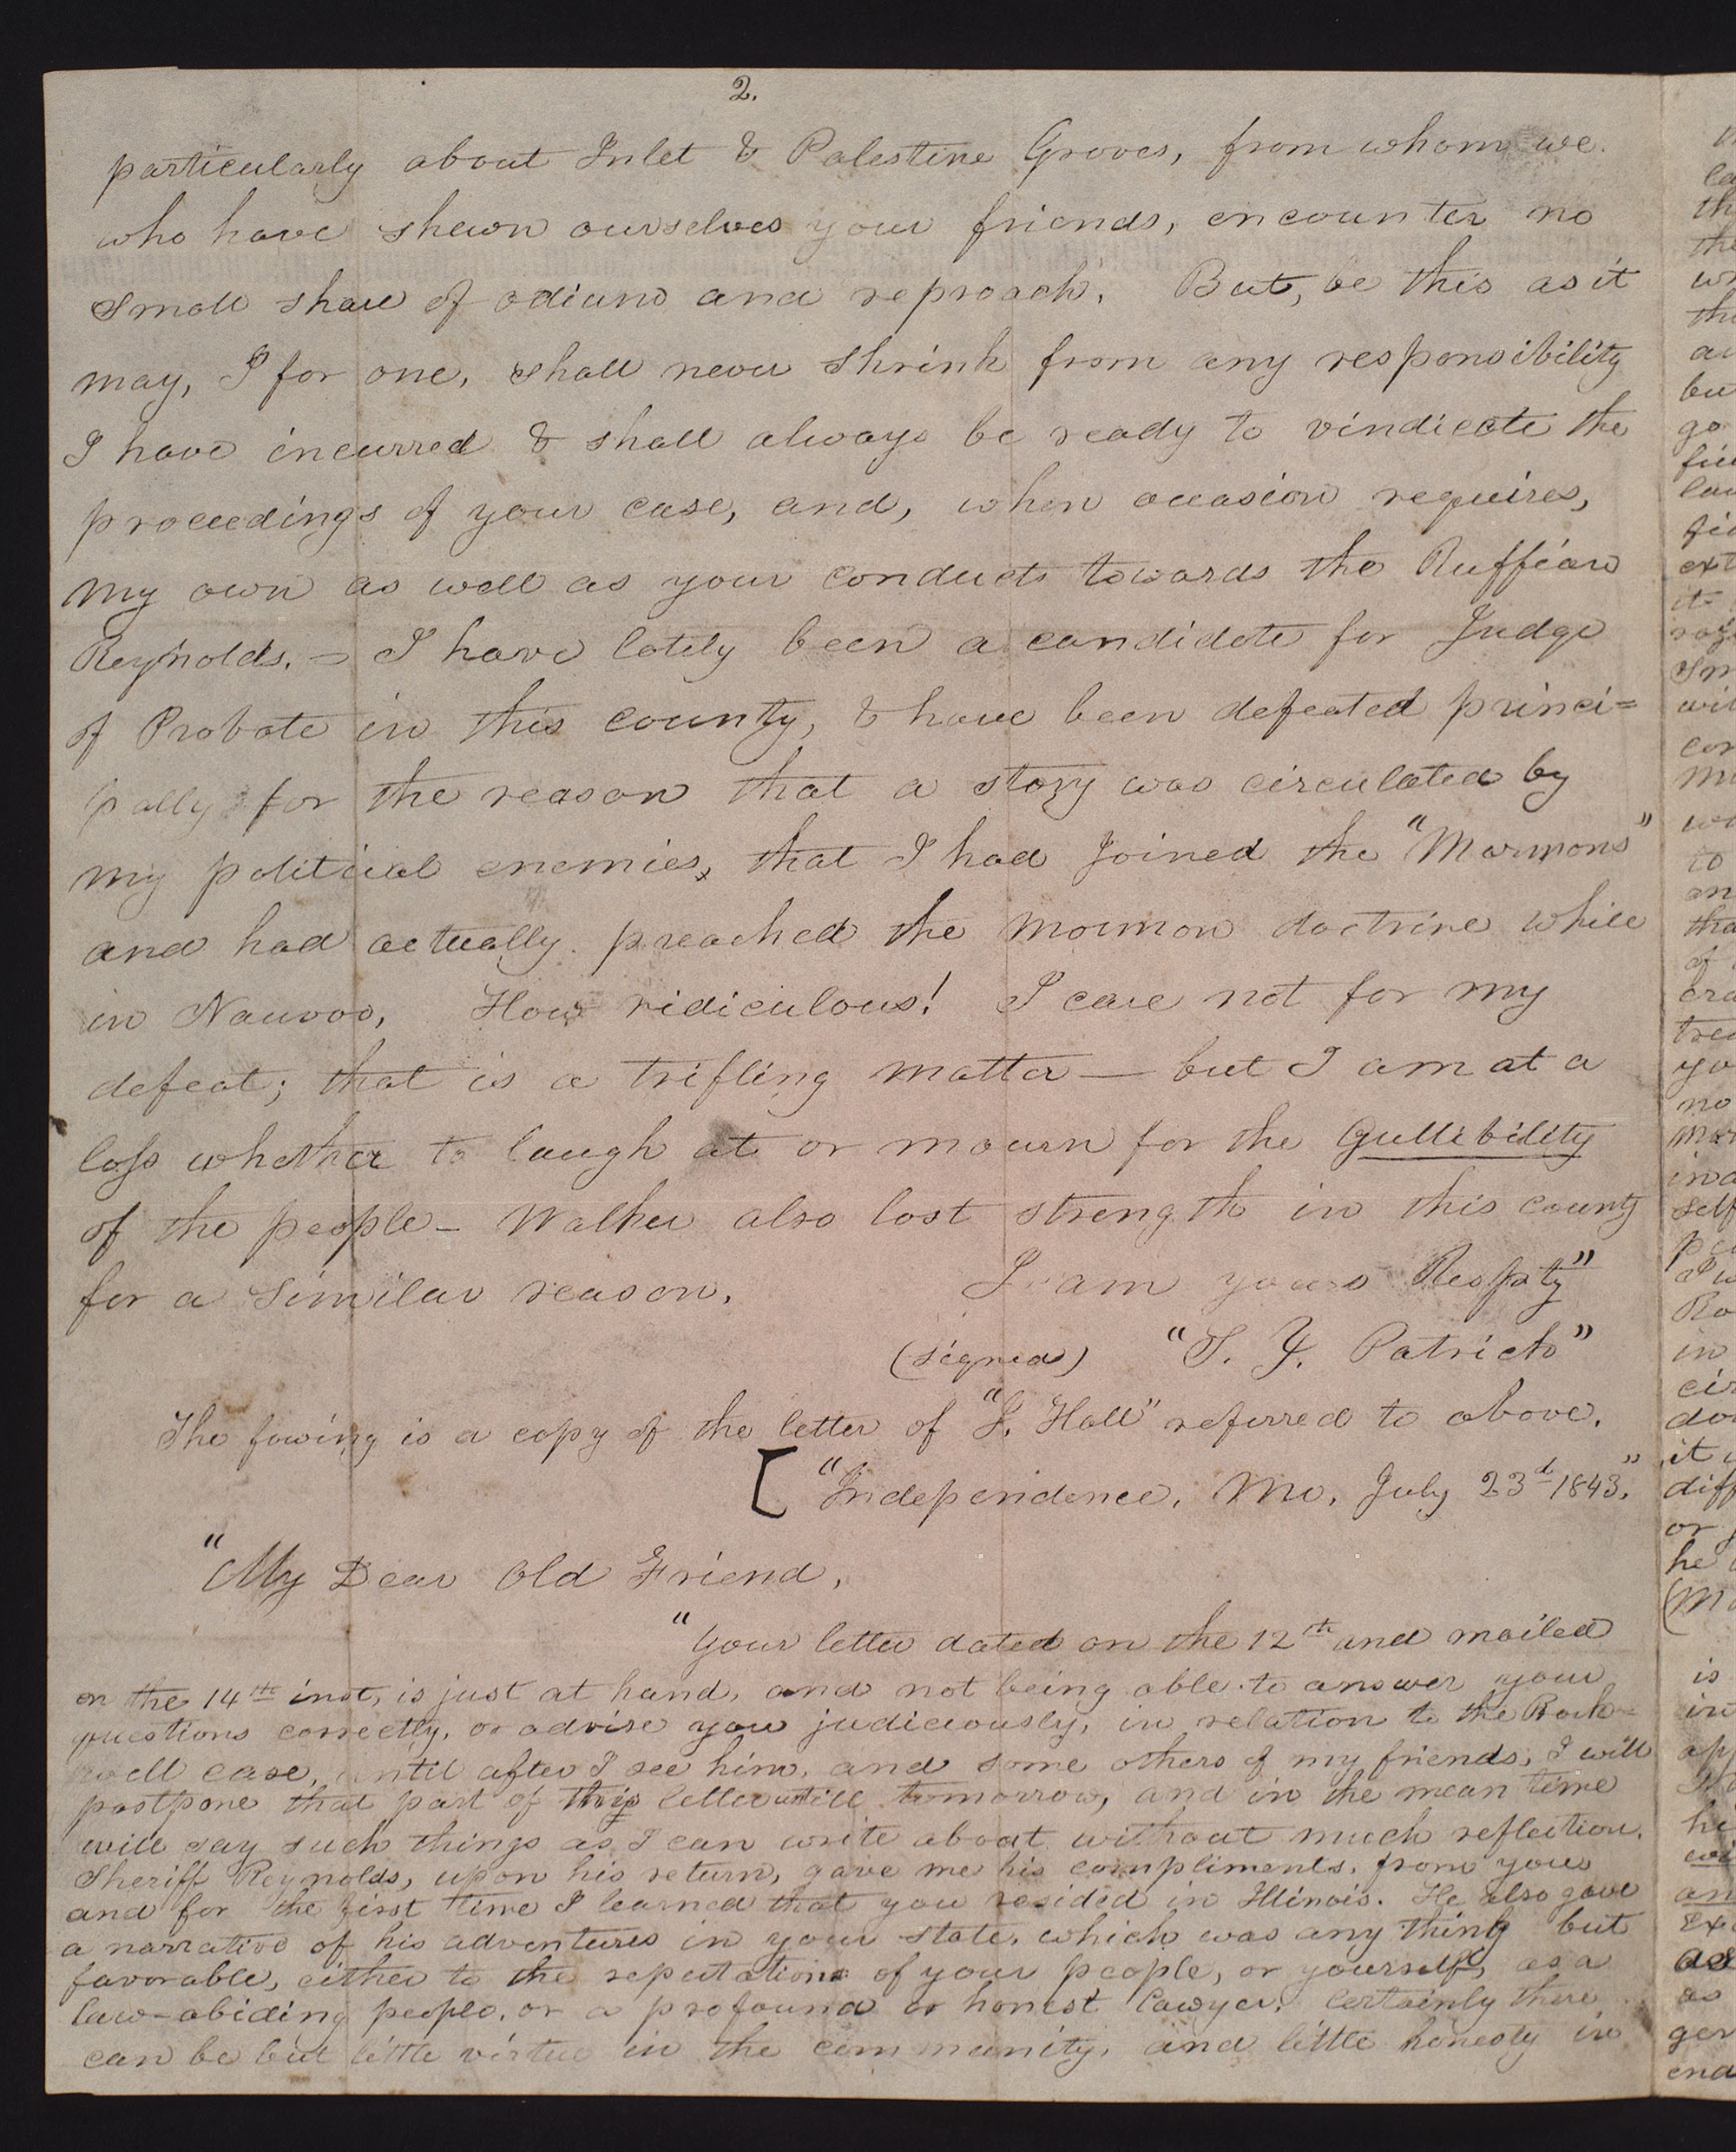 2.
particularly about Inlet & Palestine Groves, from whom we
who have shewn ourselves your friends, encounter no
small share of odium and reproach. But, be this as it
may, I for one, shall never shrink from any responsibility
I have incurred & shall always be ready to vindicate the
proceedings of your case, and, when occasion requires,
my own as well as your conduct towards the Ruffian
Reynolds. — I have lately been a candidate for Judge
of Probate in this county, & have been defeated princi=
pally for the reason that a story was circulated by
my political enemies, that I had joined the "Mormons"
and had actually preached the mormon doctrine while
in Nauvoo. How ridiculous! I care not for my
defeat; that is a trifling matter — but I am at a
loss whether to laugh at or mourn for the gullibility
of the people — Walker also lost strength in this county
for a similar reason. I am yours Respty"
(signed) "S. G. Patrick"
The fowing is a copy of the letter of "J. Hall" referred to above.
["Independence, Mo. July 23d 1843."
"My Dear Old Friend,
"Your letter dated on the 12th and mailed
on the 14th inst, is just at hand, and not being able to answer your
questions correctly, or advise you judiciously, in relation to the Rock=
well case, until after I see him, and some others of my friends, I will
postpone that part of this letter until tomorrow, and in the mean time
will say such things as I can write about without much reflection.
Sheriff Reynolds, upon his return, gave me his compliments, from you
and for the first time I learned that you resided in Illinois. He also gave
a narrative of his adventures in your state, which was any thing but
favorable, either to the reputation of your people, or yourself, as a
law-abiding people, or a profound or honest lawyer. Certainly there
can be but little virtue in the community, and little honesty in